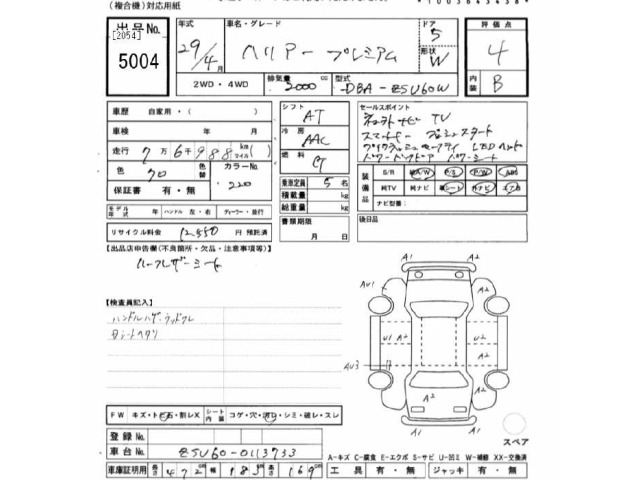 (複合機)対応用紙
出号No. 年式 車名・グレード ドア 評価点
[2054]
5004
29/4月 ハリアー プレミアム 5 4
形状 W
2WD・4WD 排気量 2000 cc 型式 DBA-ZSU60W 内装 B
車歴 自家用・( ) シフト AT セールスポイント
車検 年 月 冷房 AAC
走行 7万6千988 km マイル ( ) 燃料
スマートキー プッシュスタート
色 色替 カラーNo. 220
保証書 有・無
乗車定員 5 名
積載量 kg
総重量 kg
装備品 S/R A/W P/S P/W ABS
純TV 純ナビ 革シート 外ナビ エアB
ナビ型番:
モデル年式 年 ハンドル 左・右 ディーラー・並行
書類期限 月 日
後日品
リサイクル料金 12,550 円 預託済
【出品店申告欄(不良箇所・欠品・注意事項等)】
ハーフレザーシート
【検査員記入】
A1 A1 A1
AU1 A2
U1 A2 U2
AU3 A2
A2
A1 A1
FW キズ・トビ石・割レX シート内装 コゲ・穴・汚レ・シミ・破レ・スレ
スペア
登録No.
車台No. ZSU60-0113733
A-キズ C-腐食 E-エクボ S-サビ U-凹ミ W-補修 XX-交換済
車庫証明用 長さ 472 cm 幅 183 cm 高さ 169 cm 工具 有・無 ジャッキ 有・無